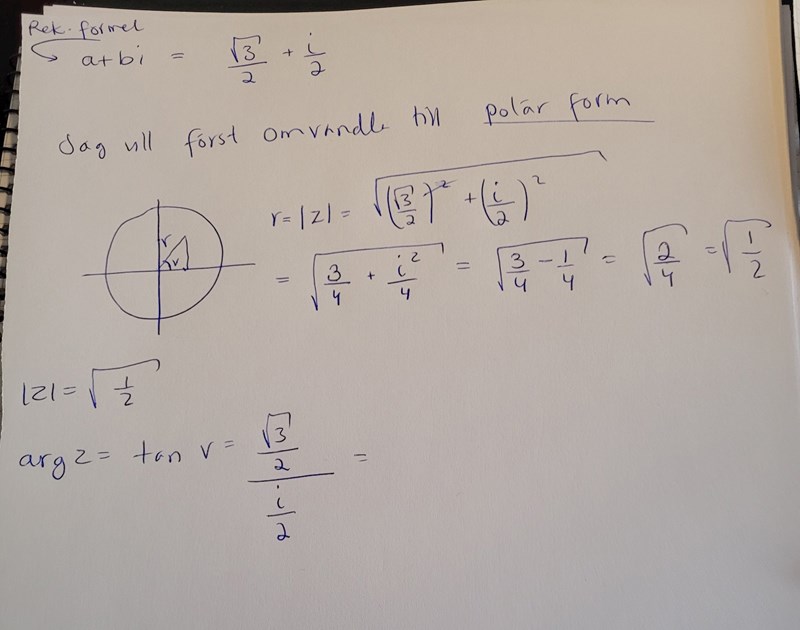 Rek. formel
a+bi = √3/2 + i/2
Jag vill först omvandla till polär form
r = |z| = √((√3/2)² + (i/2)²)
= √(3/4 + i²/4) = √(3/4 - 1/4) = √(2/4) = √(1/2)
r
v
|z| = √(1/2)
arg z = tan v = (√3/2)/(i/2) =